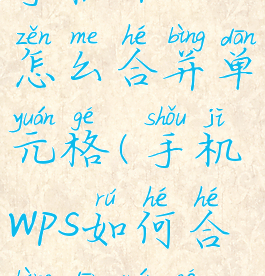 zěn me hé bìng dān
怎么合并单
yuán gé shǒu jī
元格(手机
rú hé hé
wps如何合